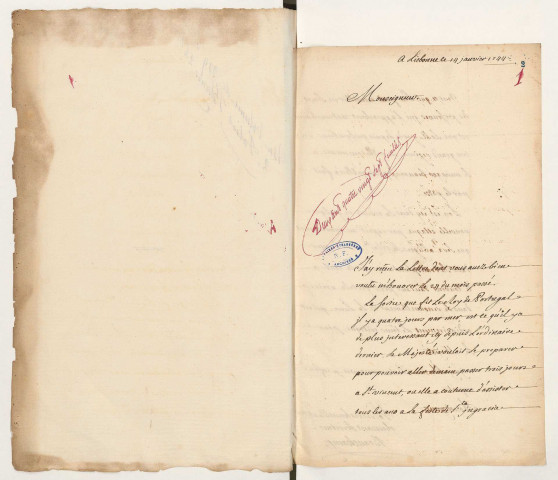 A Lisbonne le 14 janvier 1744.
1
Monseigneur
Deux cent quatre vingt sept feuillets
R. F.
J'ay reçu la Lettre dont vous avez bien
voulu m'honorer le 24 du mois passé.
La sortie que fit le Roy de Portugal
il y a quatre jours par mer est ce qu'il y a
de plus interessant icy depuis l'ordinaire
dernier. Sa Majesté vouloit se preparer
pour pouvoir aller demain passer trois jours
a St Vincent, ou elle a coutume d'assister
tous les ans a la feste de